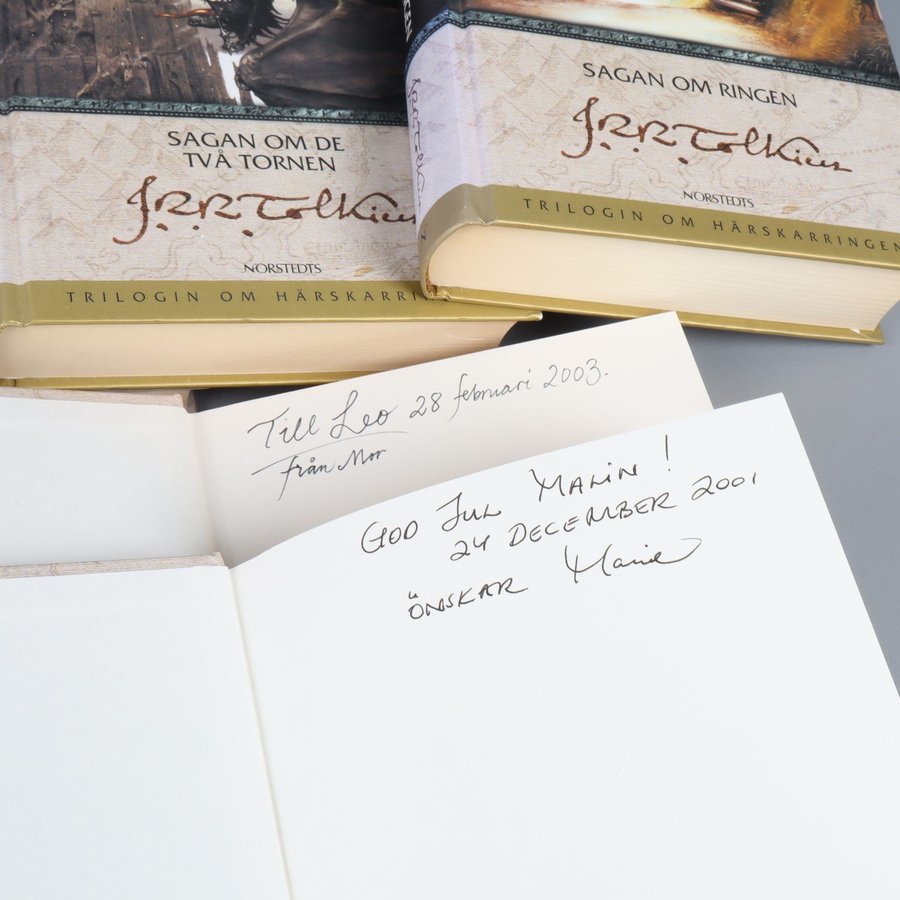 SAGAN OM DE
TVÅ TORNEN
J.R.R. Tolkien
NORSTEDTS
TRILOGIN OM HÄRSKARRI
SAGAN OM RINGEN
J.R.R. Tolkien
NORSTEDTS
TRILOGIN OM HÄRSKARRINGEN
Till Leo 28 februari 2003.
från Mor
GOD JUL MALIN!
24 DECEMBER 2001
ÖNSKAR Marie